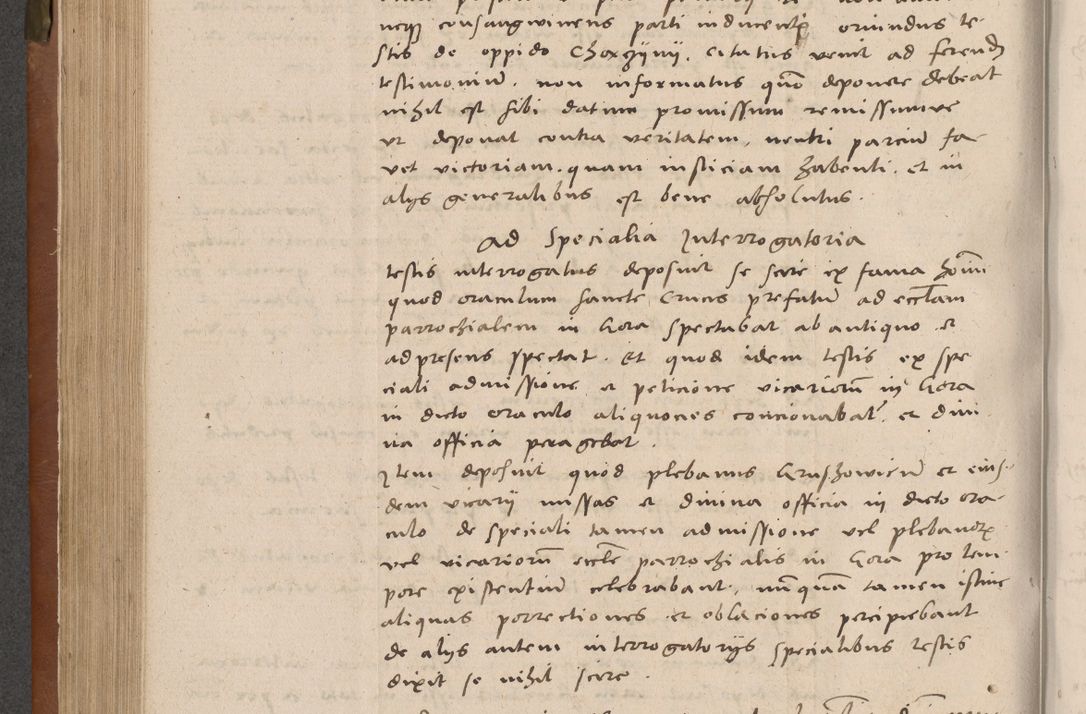 neqz consangwineus parti inducentj oriundus te-
stis de oppido Chorzijnij. citatus venit ad ferendz
testimoniū. non informatus quō deponere debeat
nihil est sibi datum promissum remissumve
vt deponat contra veritatem, neutri parciū fa-
vet victoriam. quam insticiam habenti. et in
alijs generalibus est bene absolutus.
Ad Specialia Interrogatoria
testis interrogatus deposuit se scire ex fama hoīm
quod oraculum sancte Crucis prefatū ad eccl̄am
parrochialem in Gora spectabat ab antiquo et
ad presens spectat. Et quod idem testis ex spe
ciali admissione et peticione vicariorū in Gora
in dicto oraculo aliquocies concionabat. et divi
na officia peragebat.
Item deposuit quod plebanus Grushowiciū et eius-
dem vicarii missas et divina officia in dicto ora-
culo de speciali tamen admissione vel plebanorz
vel vicariorū eccl̄e parrochialis in Gora pro tem-
pore existentiū celebrabant. nūquā tamen istine
aliquas porrectiones et oblaciones percipiebant
de alijs autem interrogatorijs specialibus testis
dixit se nihil scire.